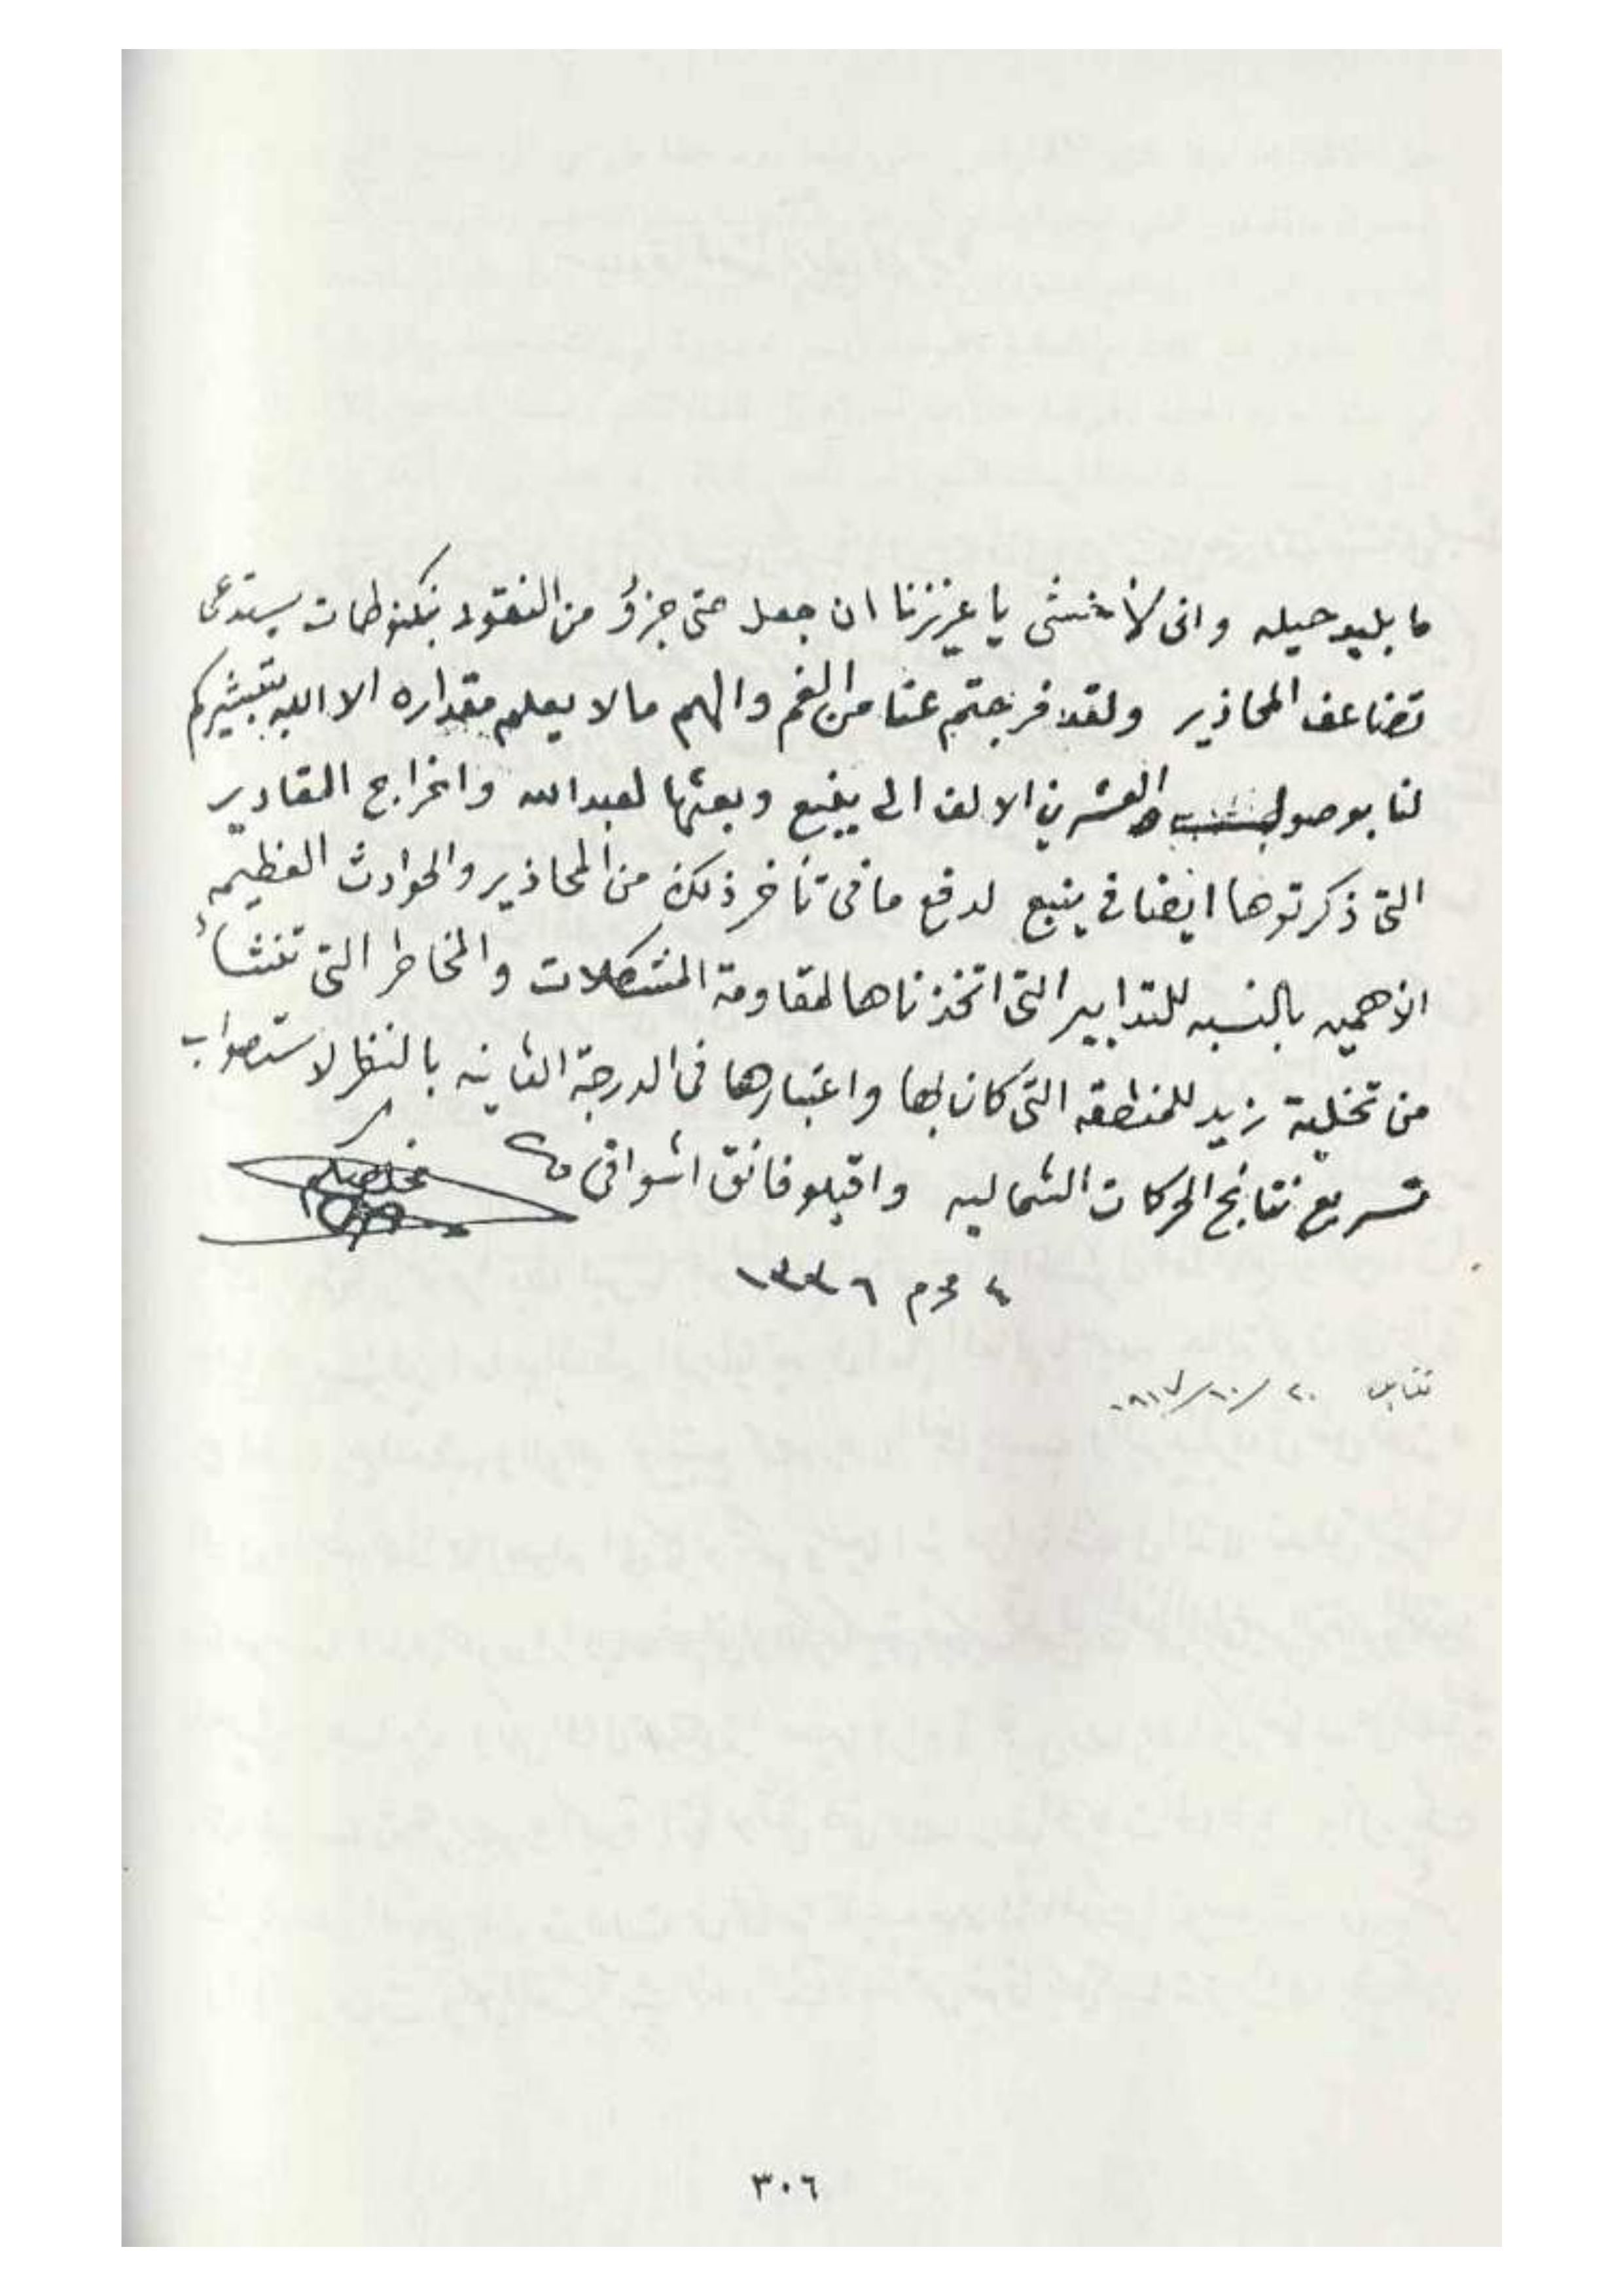 ما بليد حيله وانى لأخشى يا عزيزنا ان جعل حتى جزؤ من النقود بنكنوطات يستدعى
تضاعف المحاذير ولقد فرجتم عنا من الغم والهم مالا يعلم مقداره الا الله بتبشيركم
لنا بوصول العشرين الالف الى ينبع وبعثها لعبدالله واخراج المقادير
التى ذكرتوها ايضا في ينبع لدفع ما فى تأخر ذلك من المحاذير والحوادث العظيمه
الاهميه بالنسبه للتدابير التى اتخذناها لمقاومة المشكلات والمخاطر التى تنشأ
من تخلية زيد للمنطقه التى كان بها واعتبارها فى الدرجة الثانيه بالنظر لاستصواب
تسريع نتايج الحركات الشماليه واقبلو فائق اشواقى
مخلصكم
٤ محرم ١٣٣٦
تقابل ٢٠/١٠/٩١٧
٣٠٦